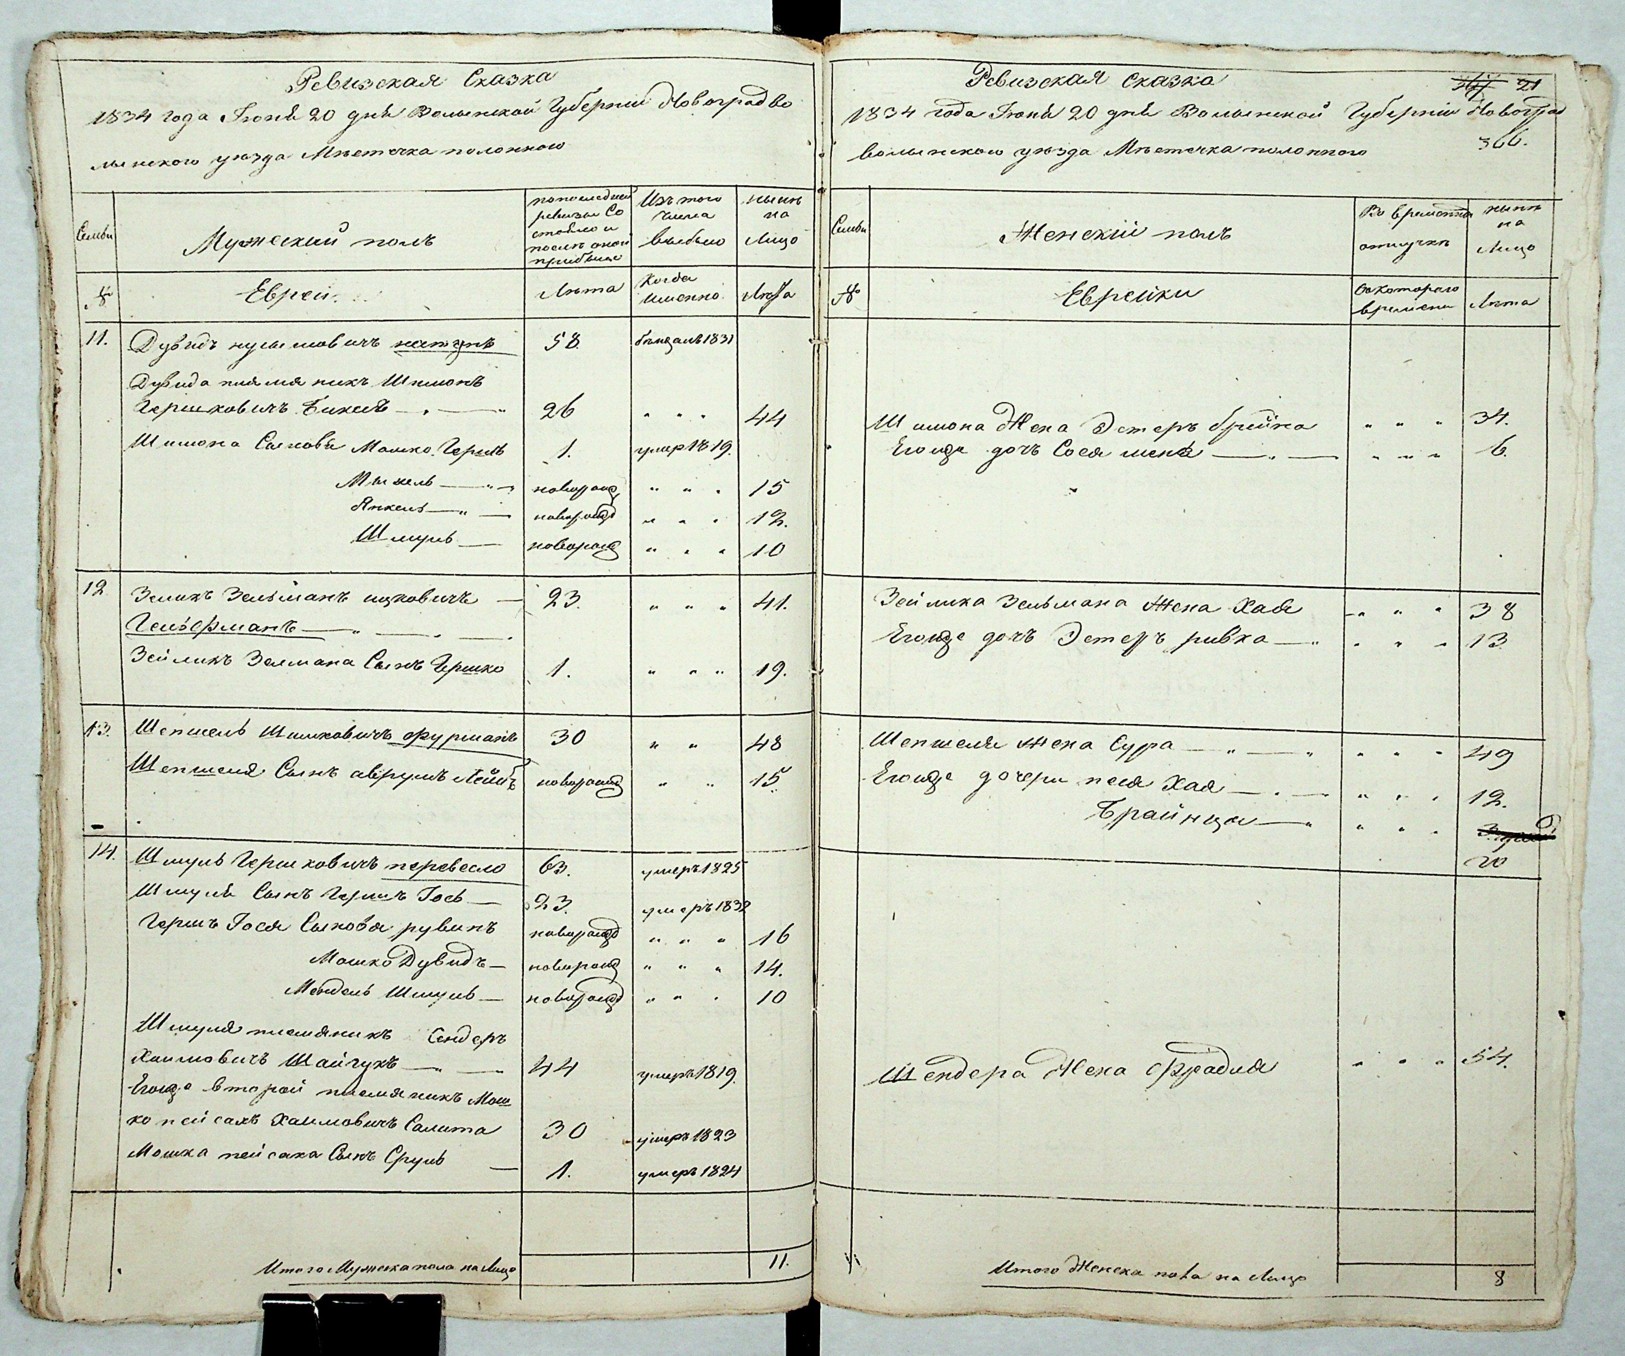 Ревизская Сказка
1834 года Іюня 20 дня Волынской Губерніи Новоградво
лынского уѣзда Мѣстечка полонного
Семьи
Мужеский полъ
попоследней ревизіи Со стояло и послѣ оной прибыло
Изъ того числа выбыло
нынѣ на Лицо
№
Евреи
Лѣта
Когда именно
Лѣта
11. Дувидъ нусымовичъ 58. 1831
Дувида племяникъ Шимонъ
Гершковичъ 26 " " " 44
Шимона Сыновя Мошко Гершъ 1. умеръ 1819.
новорожд " " " 15
Янкель новорожд " " " 12.
Шмуль новорожд " " " 10
12 Зеликъ Зельманъ ицковичъ 23. " " " 41.
Гельфманъ
Зейликъ Зелмана Сынъ Гершко 1. " " " 19.
13. Шепшель Шимковичъ фурманъ 30 " " 48
Шепшеля Сынъ аврумъ Лейбъ новорожд " " 15.
14. Шмуль Гершковичъ перевесло 63. умеръ 1825
Шмуля Сынъ Гершъ Гось 23. умеръ 1832
Гершъ Гося Сыновя рувинъ новорожд " " " 16
Мошко Дувидъ новорожд " " " 14.
Мендель Шмуль новорожд " " " 10
Шмуля племяникъ Сендеръ
Хаимовичъ Шайчукъ 44 умеръ 1819.
Егожъ второй племяникъ Мош
ко пейсахъ Хаимовичъ Салита 30 умеръ 1823
Мошка пейсаха Сынъ Сруль 1. умеръ 1824
Итого Мужеска пола на Лицо 11.
Ревизская Сказка 21
1834 года Іюня 20 дня Волынской Губерніи Новоград
волынского уѣзда Мѣстечка полонного 366.
Семьи
Женскій полъ
Во временной отлучкѣ
нынѣ на Лицо
№
Еврейки
Съ котораго времени
Лѣта
Шимона Жена Эстеръ брейна " " " 34.
Егожъ дочъ Сося " " " 6.
Зейлика Зельмана Жена Хая " " " 38
Егожъ дочъ Эстеръ ривка " " " 13.
Шепшеля Жена Сура " " " 49
Егожъ дочери песя Хая " " " 12.
Брайнца " " "
10
Шендера Жена Фрадля " " " 54.
Итого Женска пола на Лицо 8